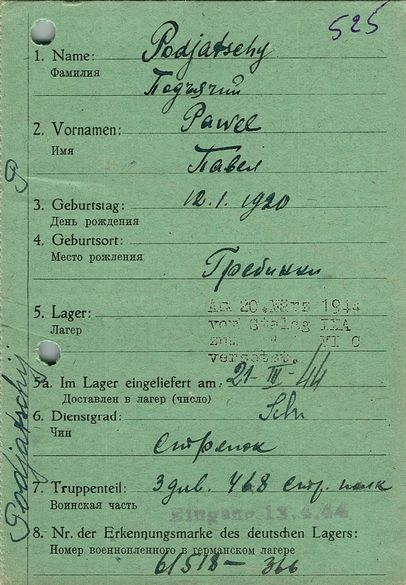 525
1. Name: Podjatschy
Фамилия Подъячий
2. Vornamen: Pawel
Имя Павел
3. Geburtstag: 12. 1. 1920
День рождения
4. Geburtsort:
Место рожления Гребинки
5. Lager: Am 20. März 1944
Лагер vom Stalag
zum " VI C
versetzt.
5a. Im Lager eingeliefert am: 21-III-44
Доставлен в лагер (число)
6. Dienstgrad:
Чин стрелок
7. Truppenteil: 3 див. 468 стр. полк
Воинская часть Eingang 13.4.44
8. Nr. der Erkennungsmarke des deutschen Lagers:
Номер военнопленного в германском лагере
6/518 – 366
P
Podjatschij